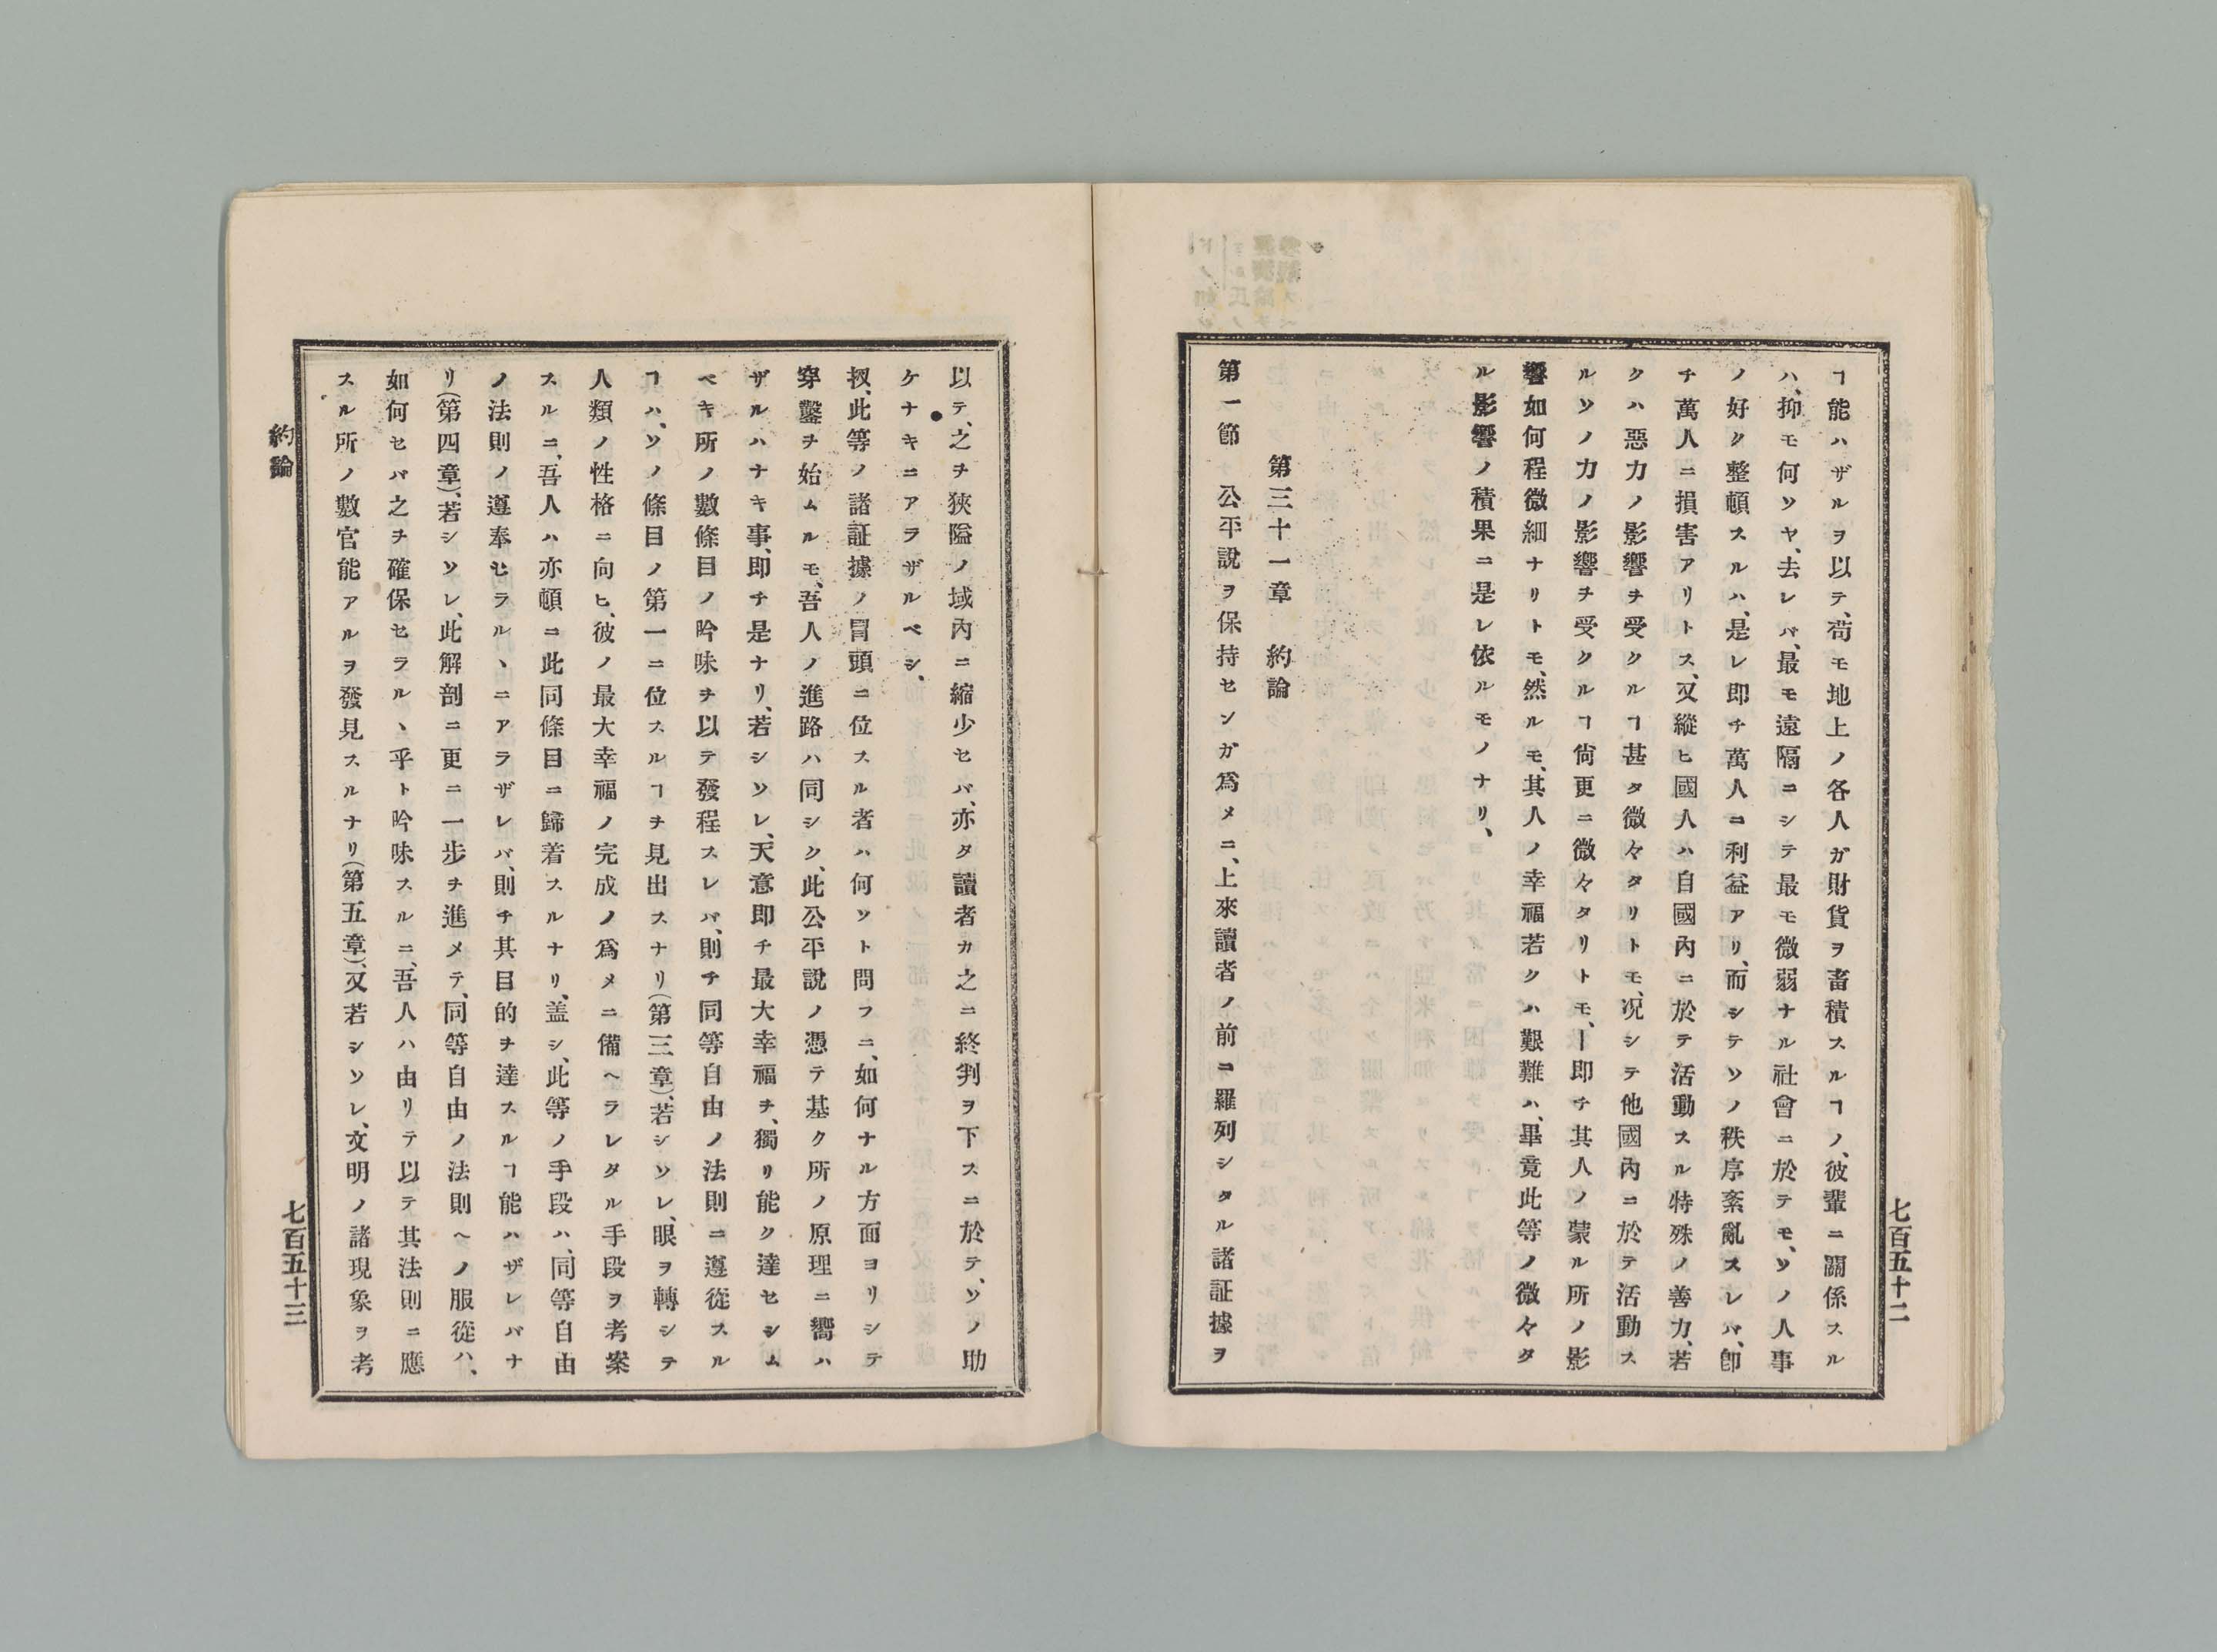 ヿ能ハザルヲ以テ、苟モ地上ノ各人ガ財貨ヲ畜積スルヿノ、彼輩ニ關係スル
ハ、抑モ何ソヤ、去レバ、最モ遠隔ニシテ最モ微弱ナル社會ニ於テモ、ソノ人事
ノ好ク整頓スルハ、是レ即チ萬人ニ利益アリ、而シテソノ秩序紊亂スレバ、卽
チ萬人ニ損害アリトス、又縱ヒ國人ハ自國內ニ於テ活動スル特殊ノ善力、若
クハ惡力ノ影響ヲ受クルヿ甚タ微々タリトモ、况シテ他國內ニ於テ活動ス
ルソノ力ノ影響チ受クルヿ尙更ニ微々タリトモ、―即チ其人ノ蒙ル所ノ影
響如何程微細ナリトモ、然ルモ、其人ノ幸福若クハ艱難ハ、畢竟此等ノ微々タ
ル影響ノ積果ニ是レ依ルモノナリ、
第三十一章　約論
第一節　公平說ヲ保持センガ爲メニ、上來讀者ノ前ニ羅列シタル諸証據ヲ
七百五十二
以テ、之チ狹隘ノ域內ニ縮少セバ、亦タ讀者カ之ニ終判ヲ下スニ於テ、ソノ助
ケナキニアラザルベシ、
扠、此等ノ諸証據ノ冐頭ニ位スル者ハ何ソト問フニ、如何ナル方面ヨリシテ
穿鑿ヲ始ムルモ、吾人ノ進路ハ同シク、此公平說ノ憑テ基ク所ノ原理ニ嚮ハ
ザルハナキ事、即チ是ナリ、若シソレ、天意即チ最大幸福チ、獨リ能ク達セシム
ベキ所ノ數條目ノ吟味チ以テ發程スレバ、則チ同等自由ノ法則ニ遵從スル
ヿハ、ソノ條目ノ第一ニ位スルヿチ見出スナリ(第三章)、若シソレ、眼ヲ轉シテ
人類ノ性格ニ向ヒ、彼ノ最大幸福ノ完成ノ爲メニ備ヘラレタル手段ヲ考案
スルニ、吾人ハ亦頓ニ此同條目ニ歸着スルナリ、盖シ、此等ノ手段ハ、同等自由
ノ法則ノ遵奉セラルヽニアラザレバ、則チ其目的チ達スルヿ能ハザレバナ
リ(第四章)、若シソレ、此解剖ニ更ニ一步チ進メテ、同等自由ノ法則ヘノ服從ハ、
如何セバ之ヲ確保セラルヽ乎ト吟味スルニ、吾人ハ由リテ以テ其法則ニ應
スル所ノ數官能アルヲ發見スルナリ(第五章)、又若シソレ、文明ノ諸現象ヲ考
約論
七百五十三